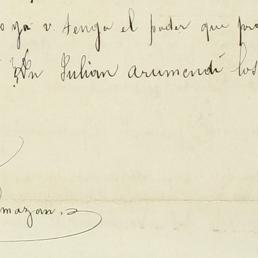 ya v. tenga el poder que
Julian Arumendi los
mazan.